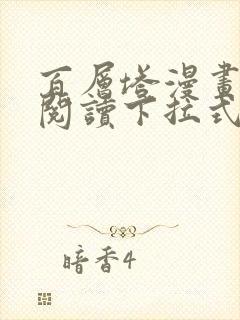 百層塔漫畫
閱讀下拉式
暗香4